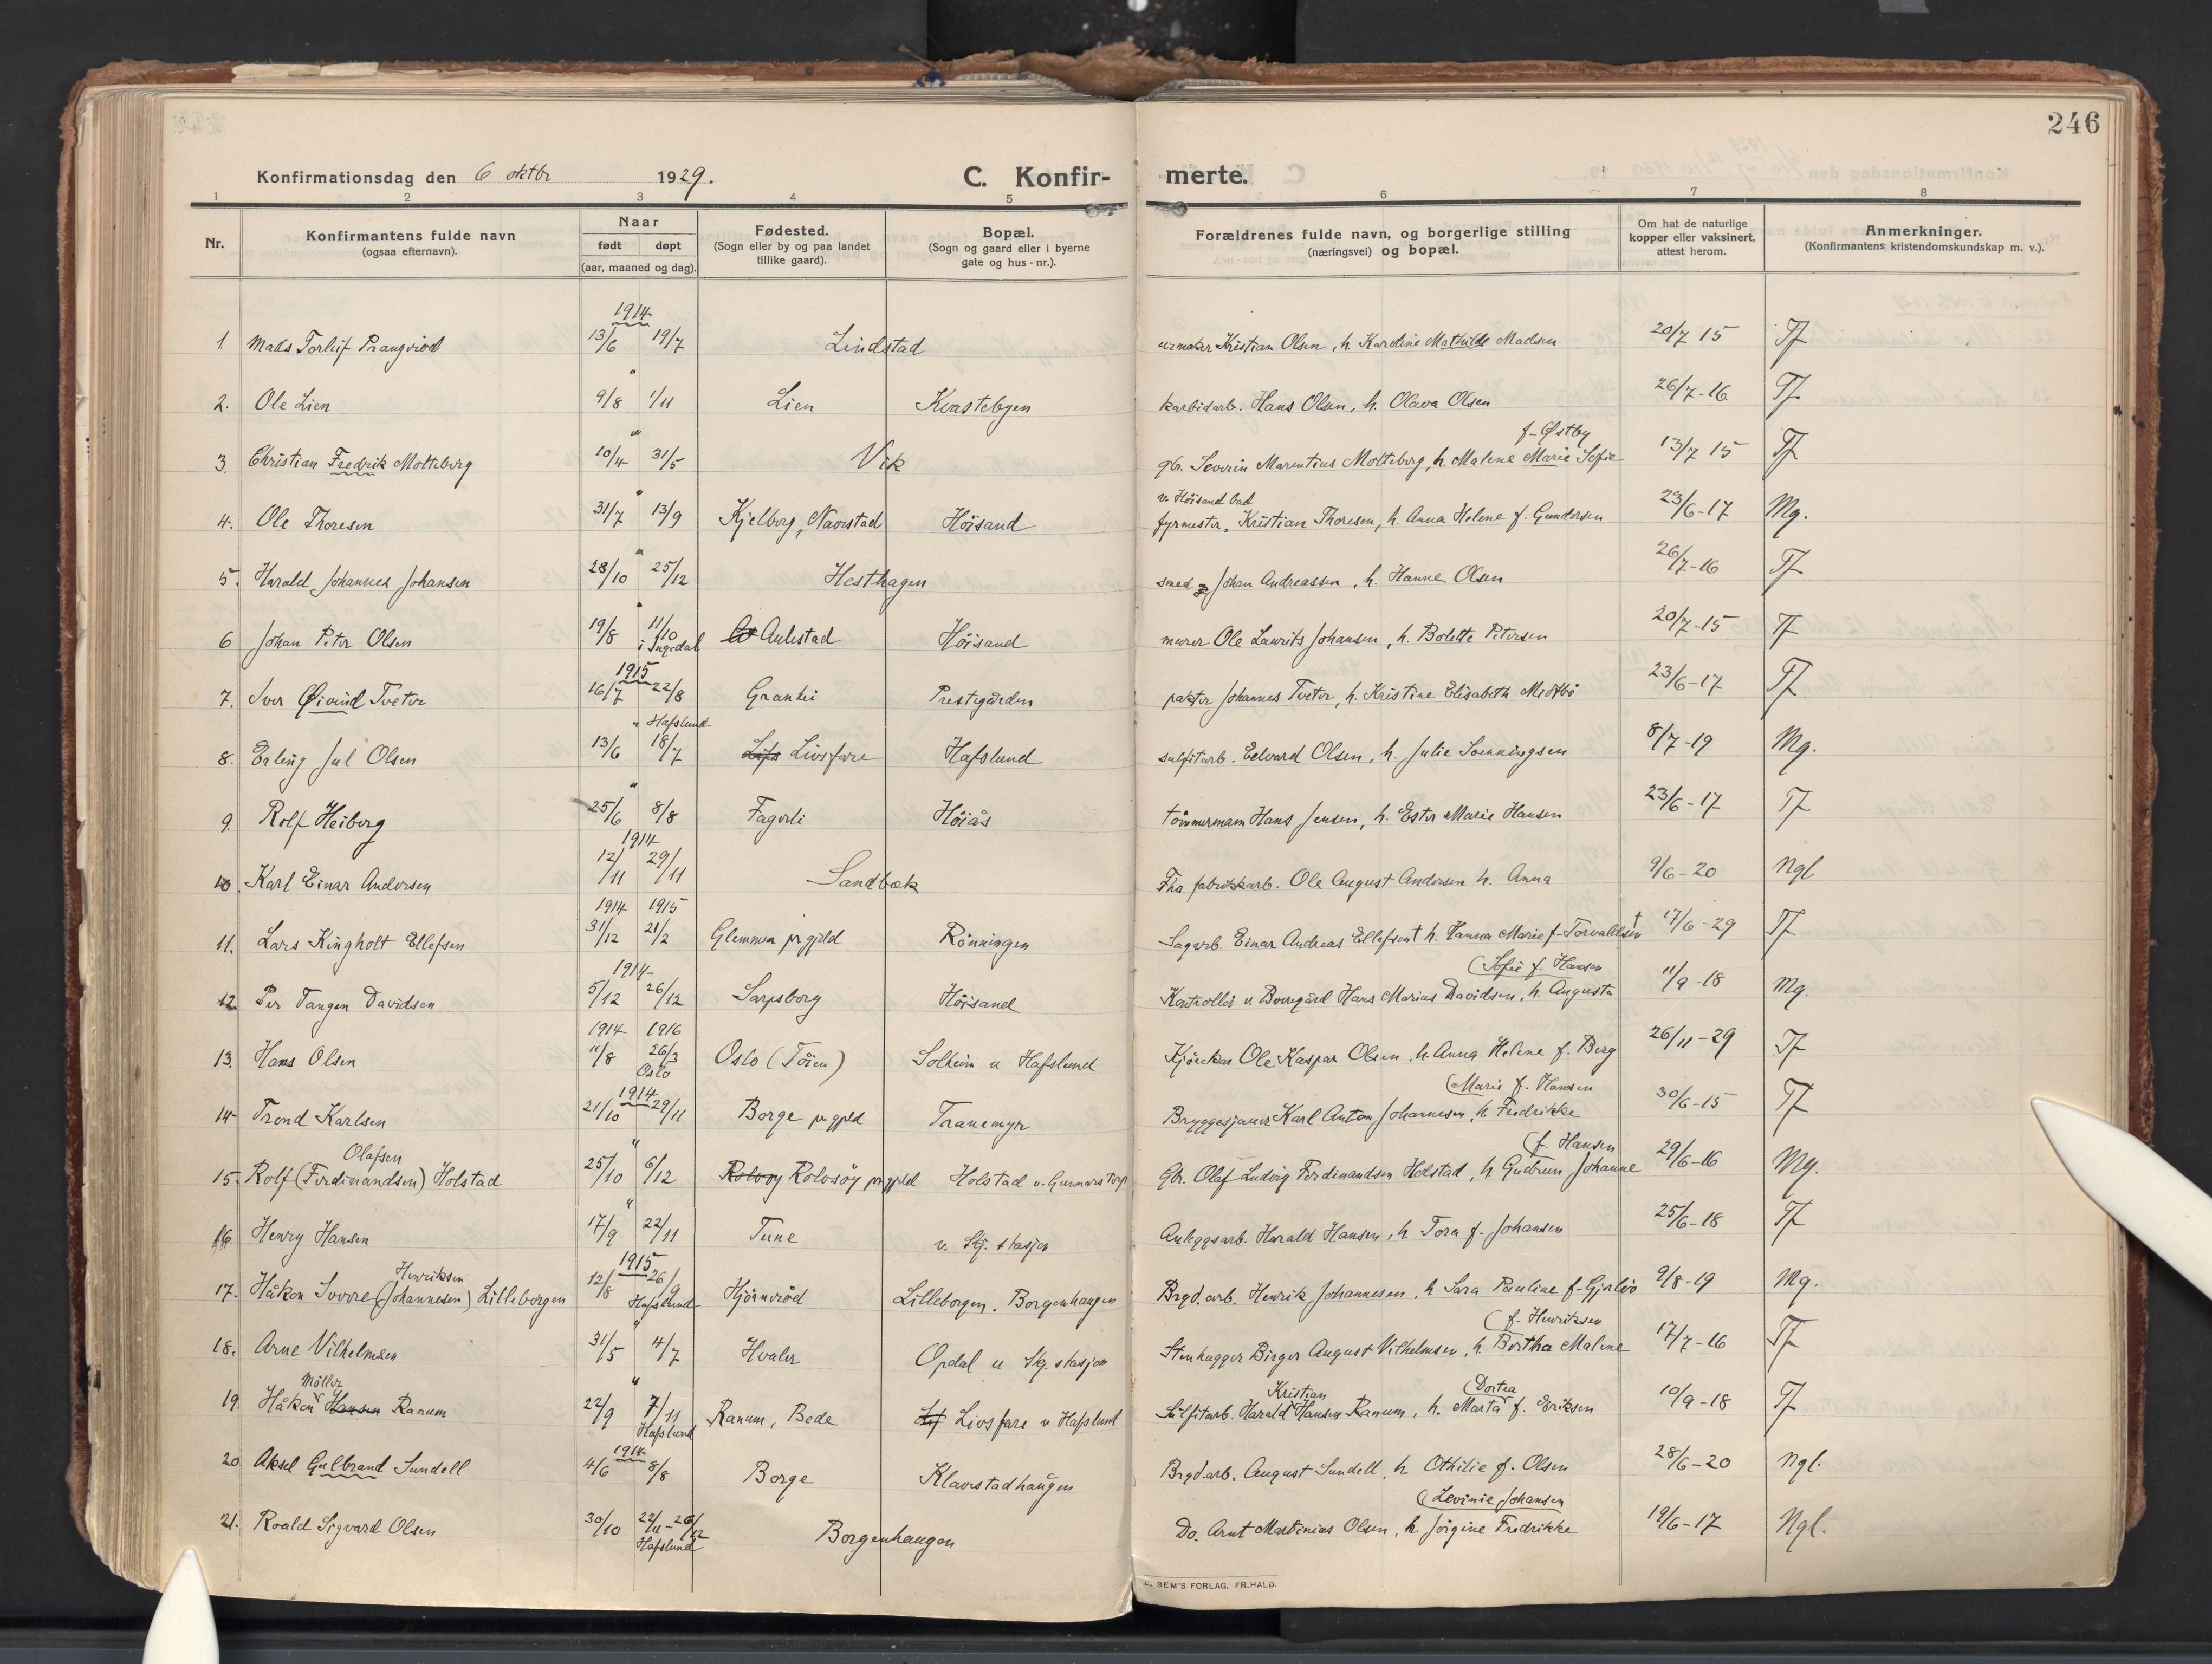 246
Konfirmationsdag den 6 oktbr 1929.
C. Konfir- merte.
1 2 3 4 5 6 7 8
Nr.
Konfirmantens fulde navn
(ogsaa efternavn).
Naar
født døpt
(aar, maaned og dag).
Fødested.
(Sogn eller by og paa landet
tillike gaard).
Bopæl.
(Sogn og gaard eller i byerne
gate og hus - nr.).
Forældrenes fulde navn, og borgerlige stilling
(næringsvei) og bopæl.
Om hat de naturlige
kopper eller vaksinert,
attest herom.
Anmerkninger.
(Konfirmantens kristendomskundskap m. v.).
1914
1. Mads Torleif Prangerød 13/6 19/7 Lindstad urmaker Kristian Olsen, h. Kardine Mathilde Madsen 20/7 15 Tf
"
2. Ole Lien 9/8 1/11 Lien Kvastebyen karbidarb. Hans Olsen, h. Olava Olsen 26/7-16 Tf
" f. Østby
3. Christian Fredrik Molteberg 10/4 31/5 Vik gbr. Severin Marentius Molteberg, h. Malene Marie Sofie 13/7 15 Tf
" v. Høisand bad
4. Ole Thoresen 31/7 13/9 Kjelberg, Navestad Høisand fyrmester, Kristian Thoresen, h. Anna Helene f. Gundersen 23/6-17 Mg.
"
5. Harald Johannes Johansen 28/10 25/12 Hesthagen smed Johan Andreassen, h. Hanne Olsen 26/7-16 Tf
"
6 Johan Peter Olsen 19/8 11/10 Aulestad Høisand murer Ole Laurits Johansen, h. Bolette Petersen 20/7-15 Tf
i Ingedal
1915
7. Iver Øivind Tveter 16/7 22/8 Granlei Prestegården pakter Johannes Tveter, h. Kristine Elisabeth Midtbø 23/6-17 Tf
" Hafslund
8. Erling Jul Olsen 13/6 18/7 Lifs Livsfare Hafslund sulfitarb. Edvard Olsen, h. Julie Svenningsen 8/7-19 Mg.
"
9. Rolf Heiberg 25/6 8/8 Fagerli Høiås tømmermann Hans Jensen, h. Ester Marie Hansen 23/6-17 Tf
1914
10. Karl Einar Andersen 12/11 29/11 Sandbæk Fha fabrikkarb. Ole August Andersen h. Anna 9/6-20 Ngl
1914 1915
11. Lars Kingholt Ellefsen 31/12 21/2 Glemmen prgjeld Rønningen Sagarb. Einar Andreas Ellefsen† h. Hanna Marie f. Torvaldsen† 17/6-29 Tf
1914 (Sofie f. Hansen
12 Per Tangen Davidsen 5/12 26/12 Sarpsborg Høisand Kontrollør v Borregård Hans Marius Davidsen, h. Augusta 11/9-18 Mg.
1914 1916
13. Hans Olsen 11/8 26/3 Oslo (Tøien) Solheim v Hafslund Kjørekar Ole Kaspar Olsen, h. Anna Helene f. Berg 26/11-29 Tf
Oslo
1914 (Marie f. Hansen
14 Trond Karlsen 21/10 29/11 Borge prgjeld Tranemyr Bryggesjauer Karl Anton Johannesen, h. Fredrikke 30/6-15 Tf
Olafsen " (f. Hansen
15. Rolf (Ferdinandsen) Holstad 25/10 6/12 Rolvøy Rolvsøy prgjeld Holstad v. Gunnarstorp Gbr. Olaf Ludvig Ferdinandsen Holstad, h. Gudrun Johanne 29/6-16 Mg.
"
16 Henry Hansen 17/9 22/11 Tune v. Skj. stasjon Anleggsarb. Harald Hansen, h. Tora f. Johansen 25/6-18 Tf
Henriksen 1915
17. Håkon Sverre (Johannesen) Lilleborgen 12/8 26/9 Hjørnerød Lilleborgen, Borgenhaugen Brgd. arb. Henrik Johannesen, h. Sara Pauline f. Gjerløv 9/8-19 Mg.
Hafslund
" (f. Henriksen
18. Arne Vilhelmsen 31/5 4/7 Hvaler Opdal v Skj. stasjon Stenhugger Birger August Vilhelmsen, h. Bertha Malene 17/7-16 Tf
Møller " Kristian (Dortea
19. Håkon Hansen Ranum 22/9 7/11 Ranum, Bede Lif Livsfare v Hafslund Sulfitarb. Harald Hansen Ranum, h. Marta f. Eriksen 10/9-18 Tf
Hafslund
1914
20 Aksel Gulbrand Sundell 4/6 8/8 Borge Klavestadhaugen Brgd. arb. August Sundell, h. Othilie f. Olsen 28/6-20 Ngl.
(Levinie Johansen
21. Roald Sigvard Olsen 30/10 22/11-26/12 Borgenhaugen Do. Arnt Martinius Olsen, h. Jørgine Fredrikke 19/6-17 Ngl.
Hafslund
SEM'S FORLAG, FR.HALD.